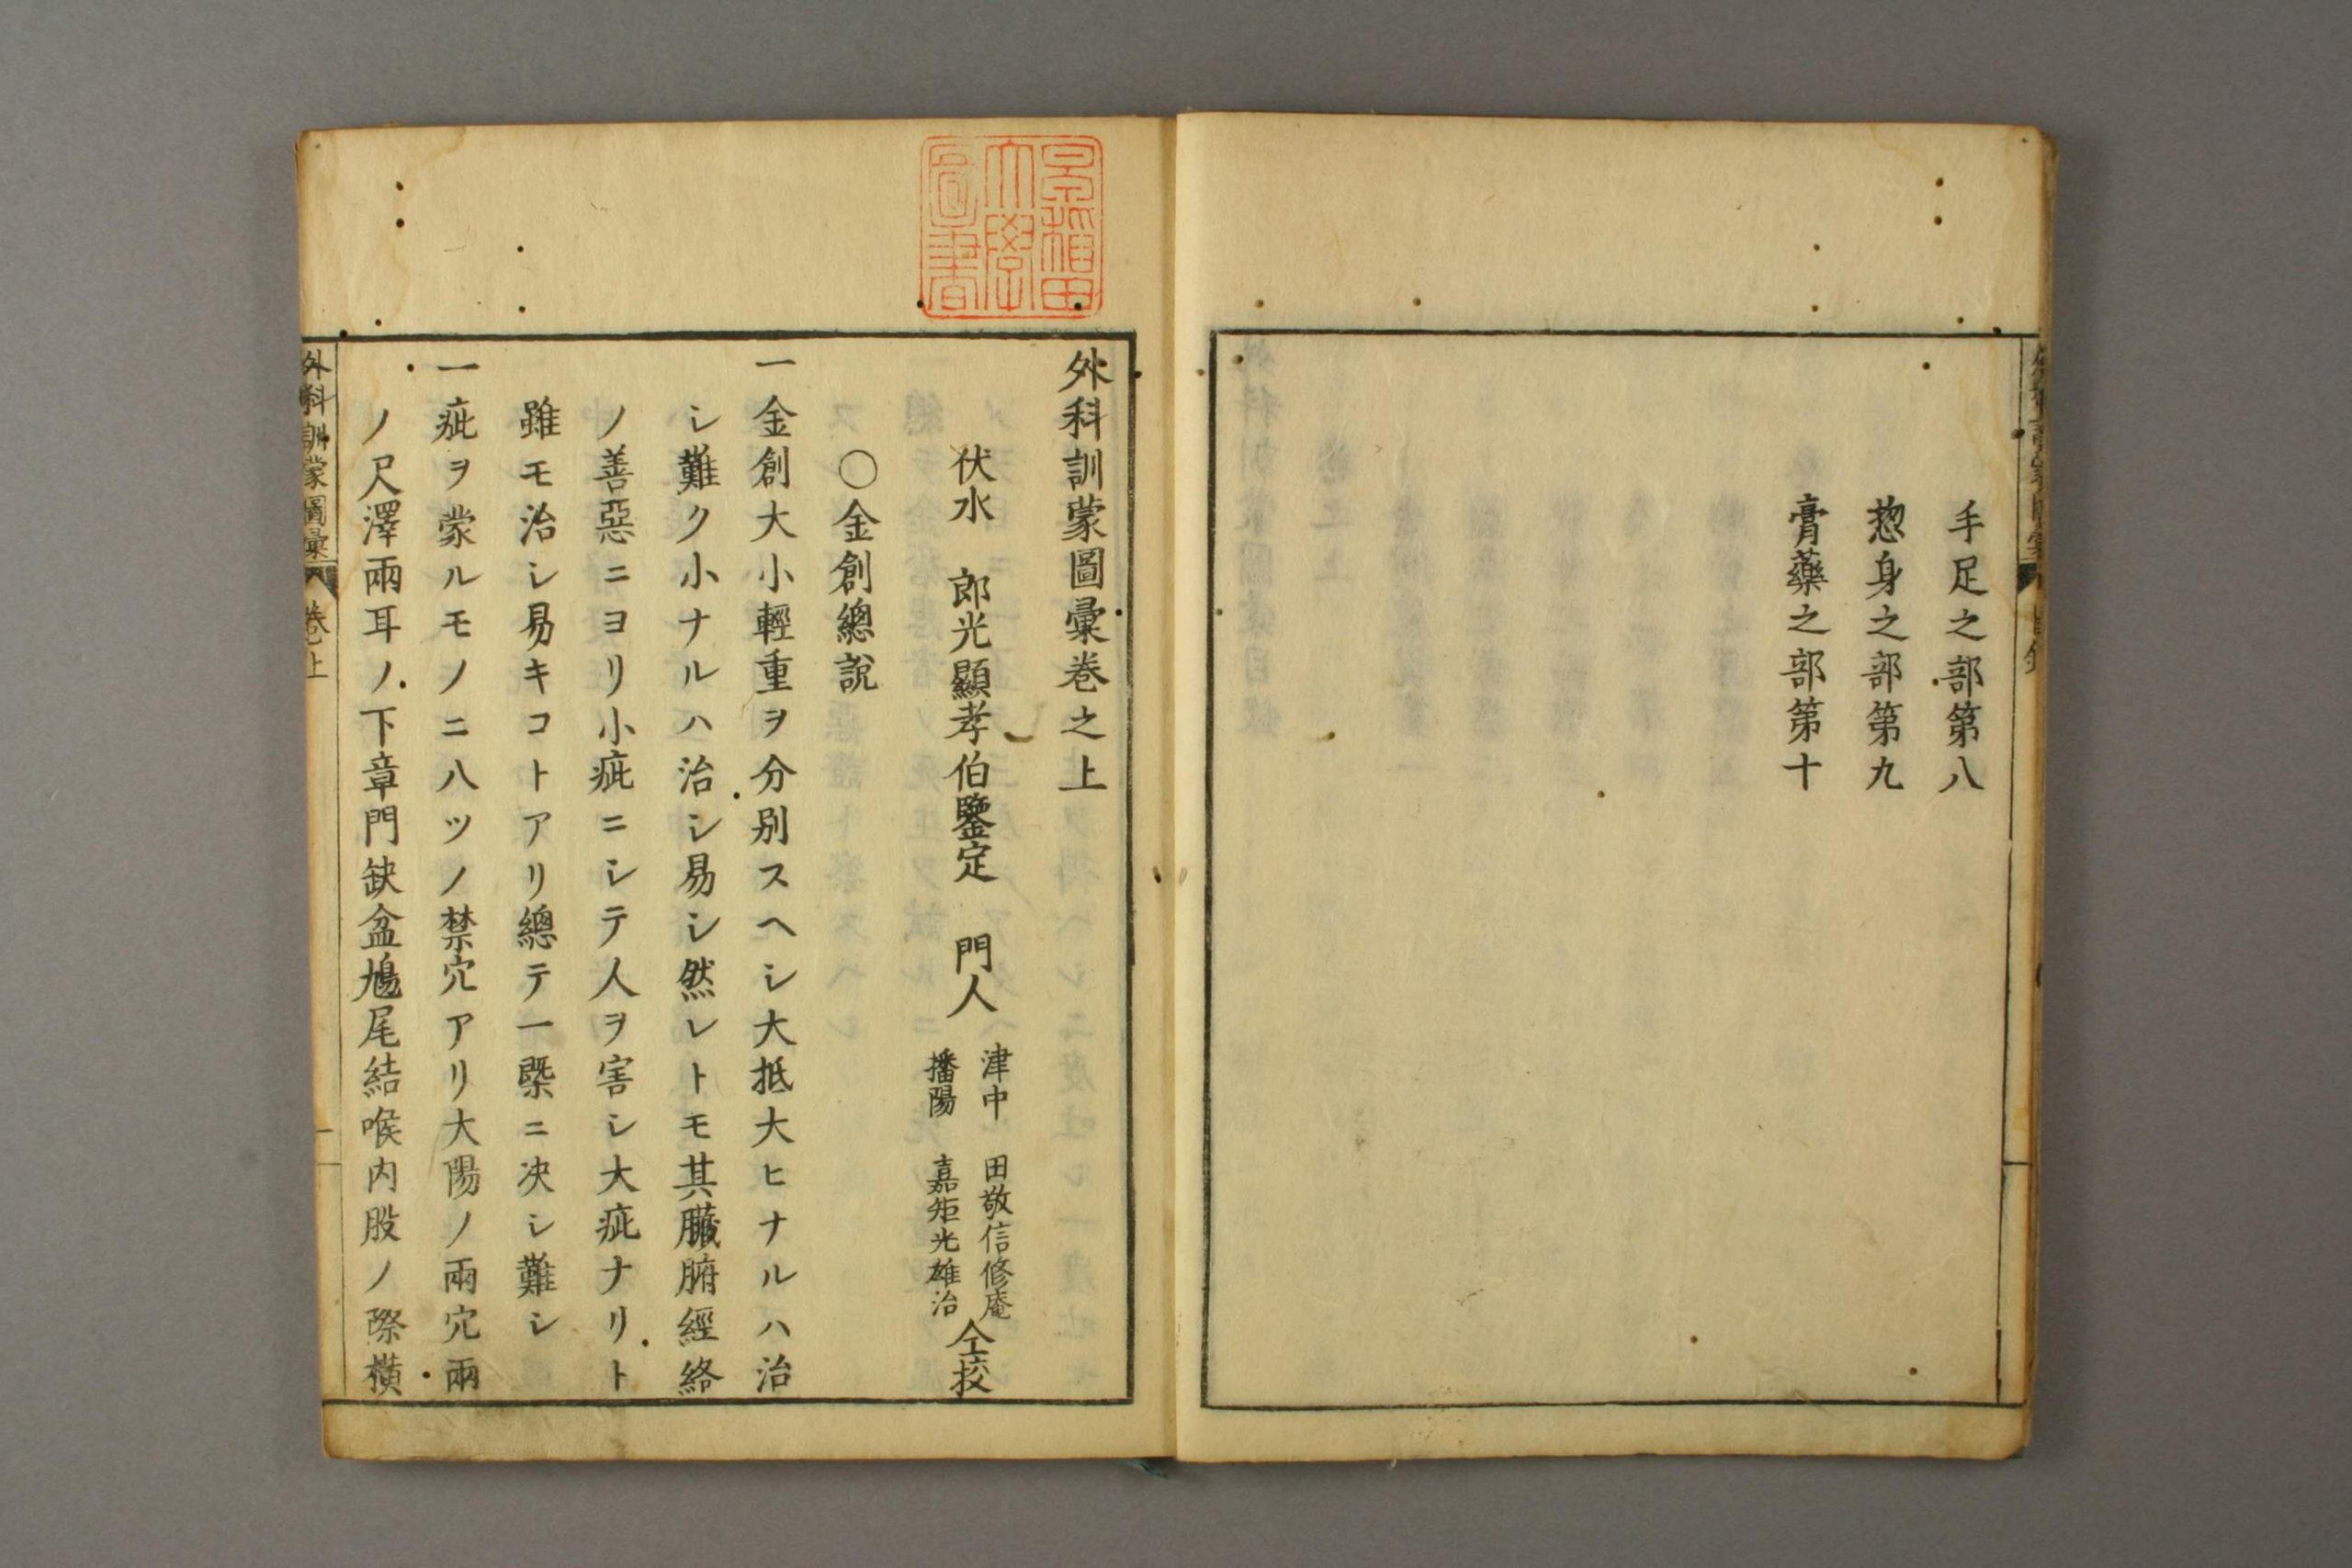 手足之部第八
惣身之部第九
膏藥之部第十
早稲田大學圖書
外科訓蒙圖彙巻之上
伏水 郎光顯孝伯鑒定 門人 津中 田敬信修庵 播陽 嘉矩光雄治 仝挍
〇金創總說
一金創大小輕重ヲ分別スヘシ大抵大ヒナルハ治
シ難ク小ナルハ治シ易シ然レトモ其臟腑經絡
ノ善惡ニヨリ小疵ニシテ人ヲ害シ大疵ナリト
雖モ治シ易キコトアリ總テ一槩ニ决シ難シ
一疵ヲ蒙ルモノニ八ツノ禁穴アリ大陽ノ兩穴兩
ノ尺澤兩耳ノ下章門缺盆鳩尾結喉内股ノ際橫
外科訓蒙圖彙 巻上